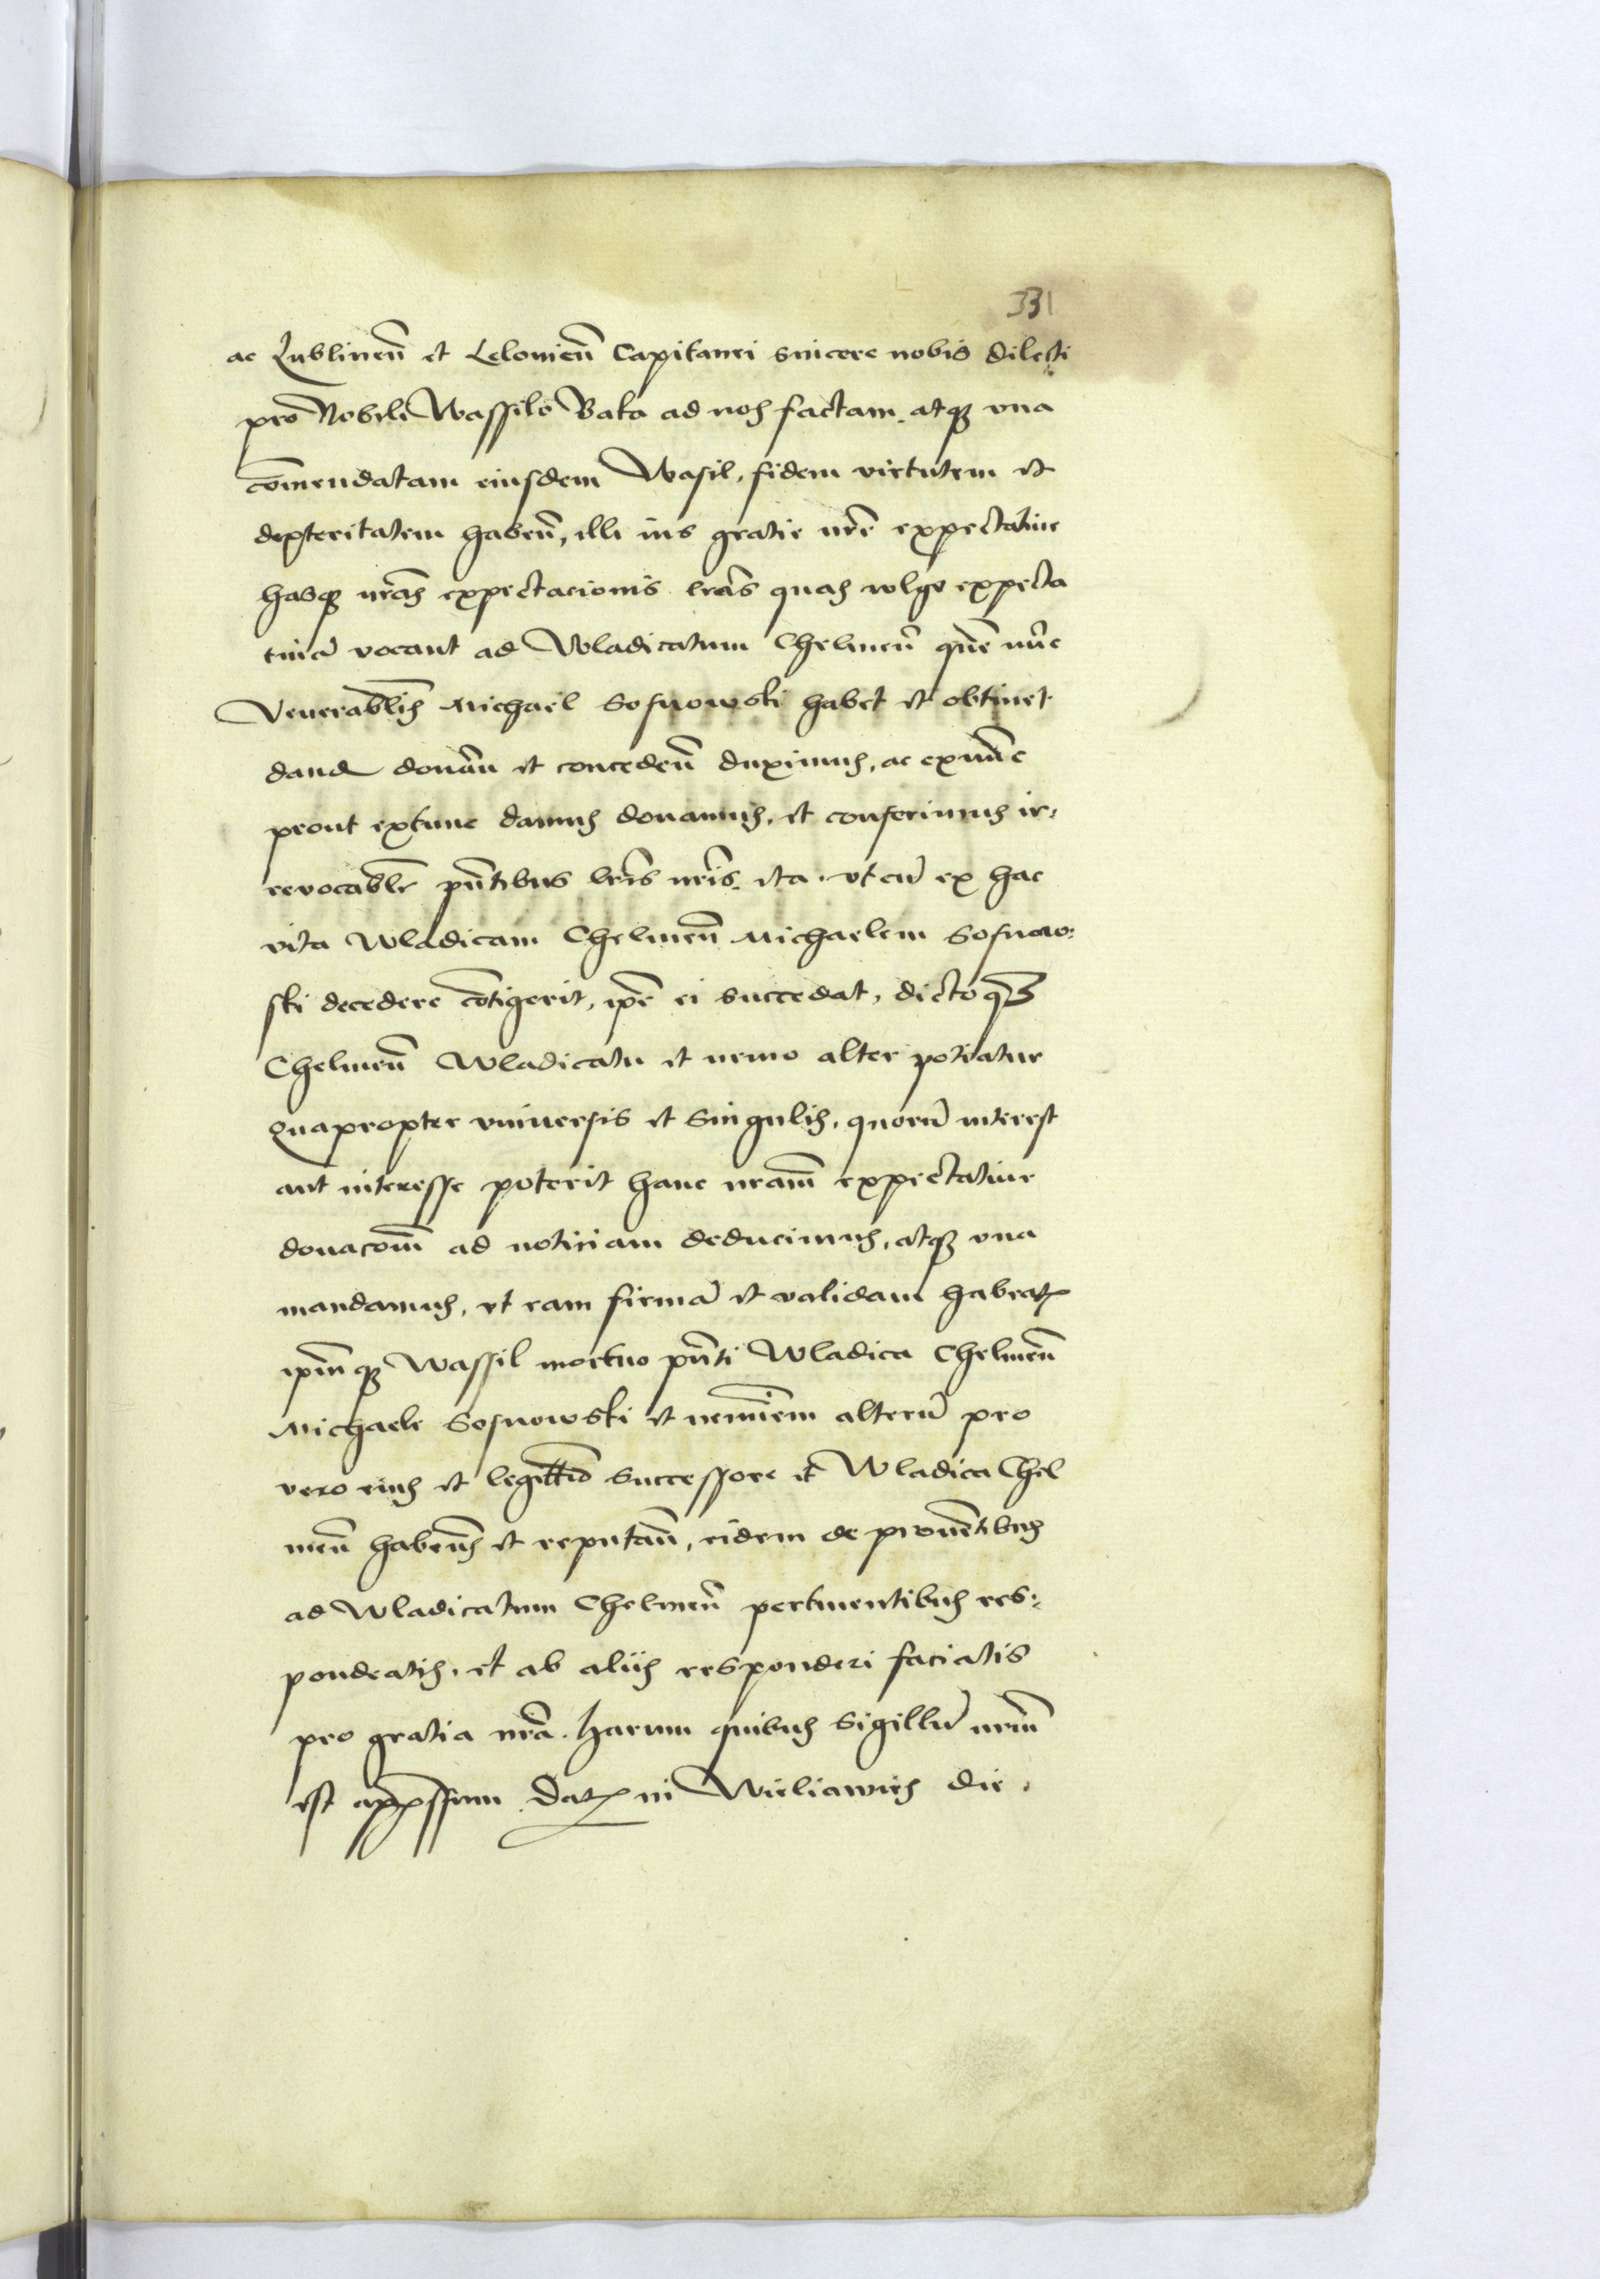 331
ac Lublineñ et Lelovieñ Capitanei sincere nobis dilecti
pro Nobili Wassilo Baka ad nos factam, atqз vna
com̃endatam eiusdem Wasil, fidem virtutem et
dexteritatem habeñ, illi ius gratie nrẽ expectatiue
hasqз nrãs expectacionis lrãs quas wlgo expecta
tiuã vocant ad Wladicatum Chelmeñ quẽ nũc
Venerabl̃is Michael Sosnowski habet et obtinet
dand donãn et concedeñ duximus, ac exnũc
prout extunc damus donamus, et conferimus ir,
reuocabl̃r pñtibus lrĩs nrĩs, ita vt cũ ex hac
vita Wladicam Chelmeñ Michaelem Sosnow:
ski decedere cõtigerit, ipẽ ei succedat, dictoqз
Chelmeñ Wladicatu et nemo alter potiatur
Quapropter vniuersis et singulis, quorũ interest
aut interesse poterit hanc nram̃ expectatiue
donacom̃ ad noticiam deducimus, atqз vna
mandamus, vt eam firmã et validam habeatꝭ
ipm̃qз Wassil mortuo pñti Wladica Chelmeñ
Michaele Sosnowski et nemĩem alterũ pro
vero eius et legittĩo successore et Wladica Chel
meñ habeñs et reputañ, eidem de prouẽtibus
ad Wladicatum Chelmeñ pertinentibus res:
pondeatis, et ab alijs responderi faciatis
pro gratia nrã. Harum quibus Sigillũ nrm̃
est appssum. Datꝭ in Wieliawies die.